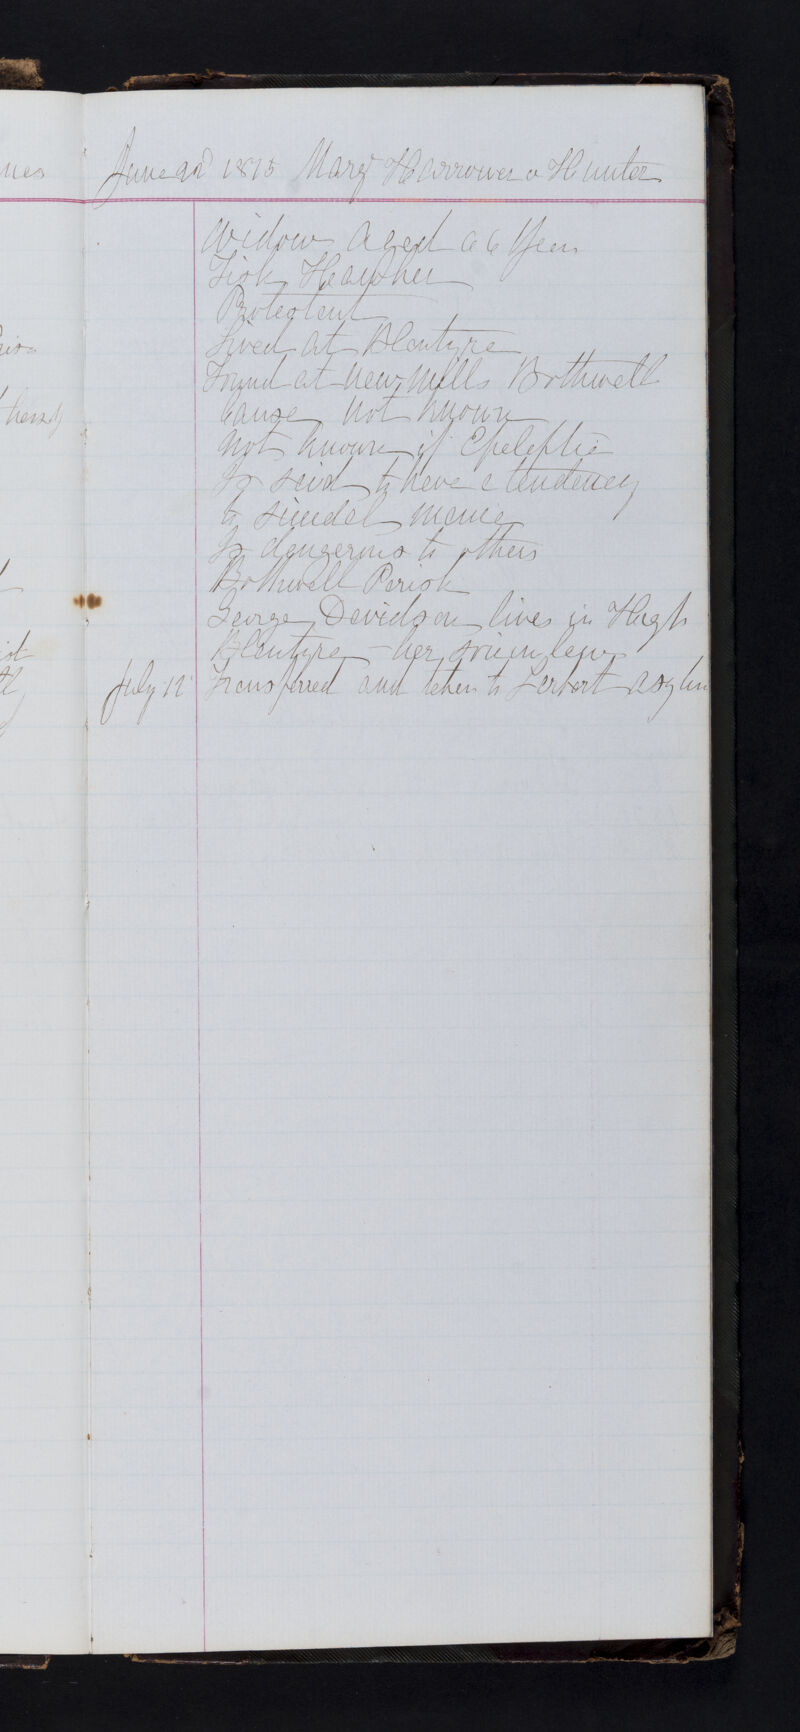 June 22d 1875 Margt Harrower or Hunter
Widow aged 66 Years
Fish Hawker
Protestant
Lived at Blantyre
Found at new mills Bothwell
Cause not known
not known if Epeleptic
Is said to have a tendency
to suicidal mania
Is dangerous to others
Bothwell Parish
George Davidson lives in High
Blantyre - her son in law
July 12 Transferred and taken to Larbert asylum